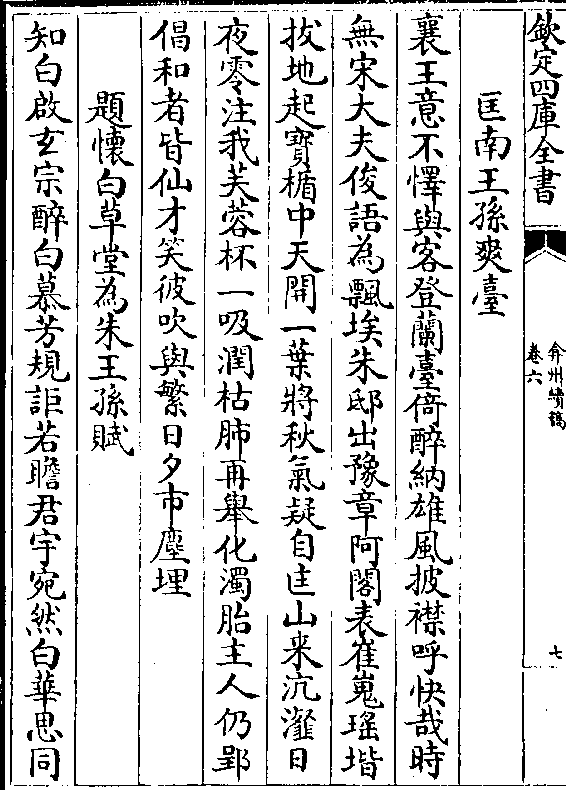 欽定四庫全書
弇州續稿
卷六
七
匡南王孫爽臺
襄王意不懌與客登蘭臺倚醉納雄風披襟呼快哉時
無宋大夫俊語為飄埃朱邸出豫章阿閣表崔嵬瑤堦
拔地起寶楯中天開一葉將秋氣疑自匡山來沆瀣日
夜零注我芙蓉杯一吸潤枯肺再舉化濁胎主人仍郢
倡和者皆仙才笑彼吹與繁日夕市塵埋
題懷白草堂為朱王孫賦
知白啟玄宗醉白慕芳規詎若瞻君宇宛然白華思同